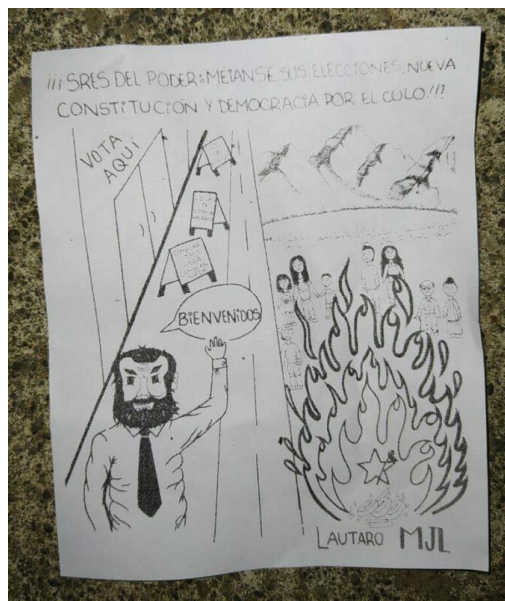 ¡¡¡SRES DEL PODER: METANSE SUS ELECCIONES, NUEVA
CONSTITUCIÓN Y DEMOCRACIA POR EL CULO!!!
VOTA
AQUÍ
BIENVENIDOS
LAUTARO MJL